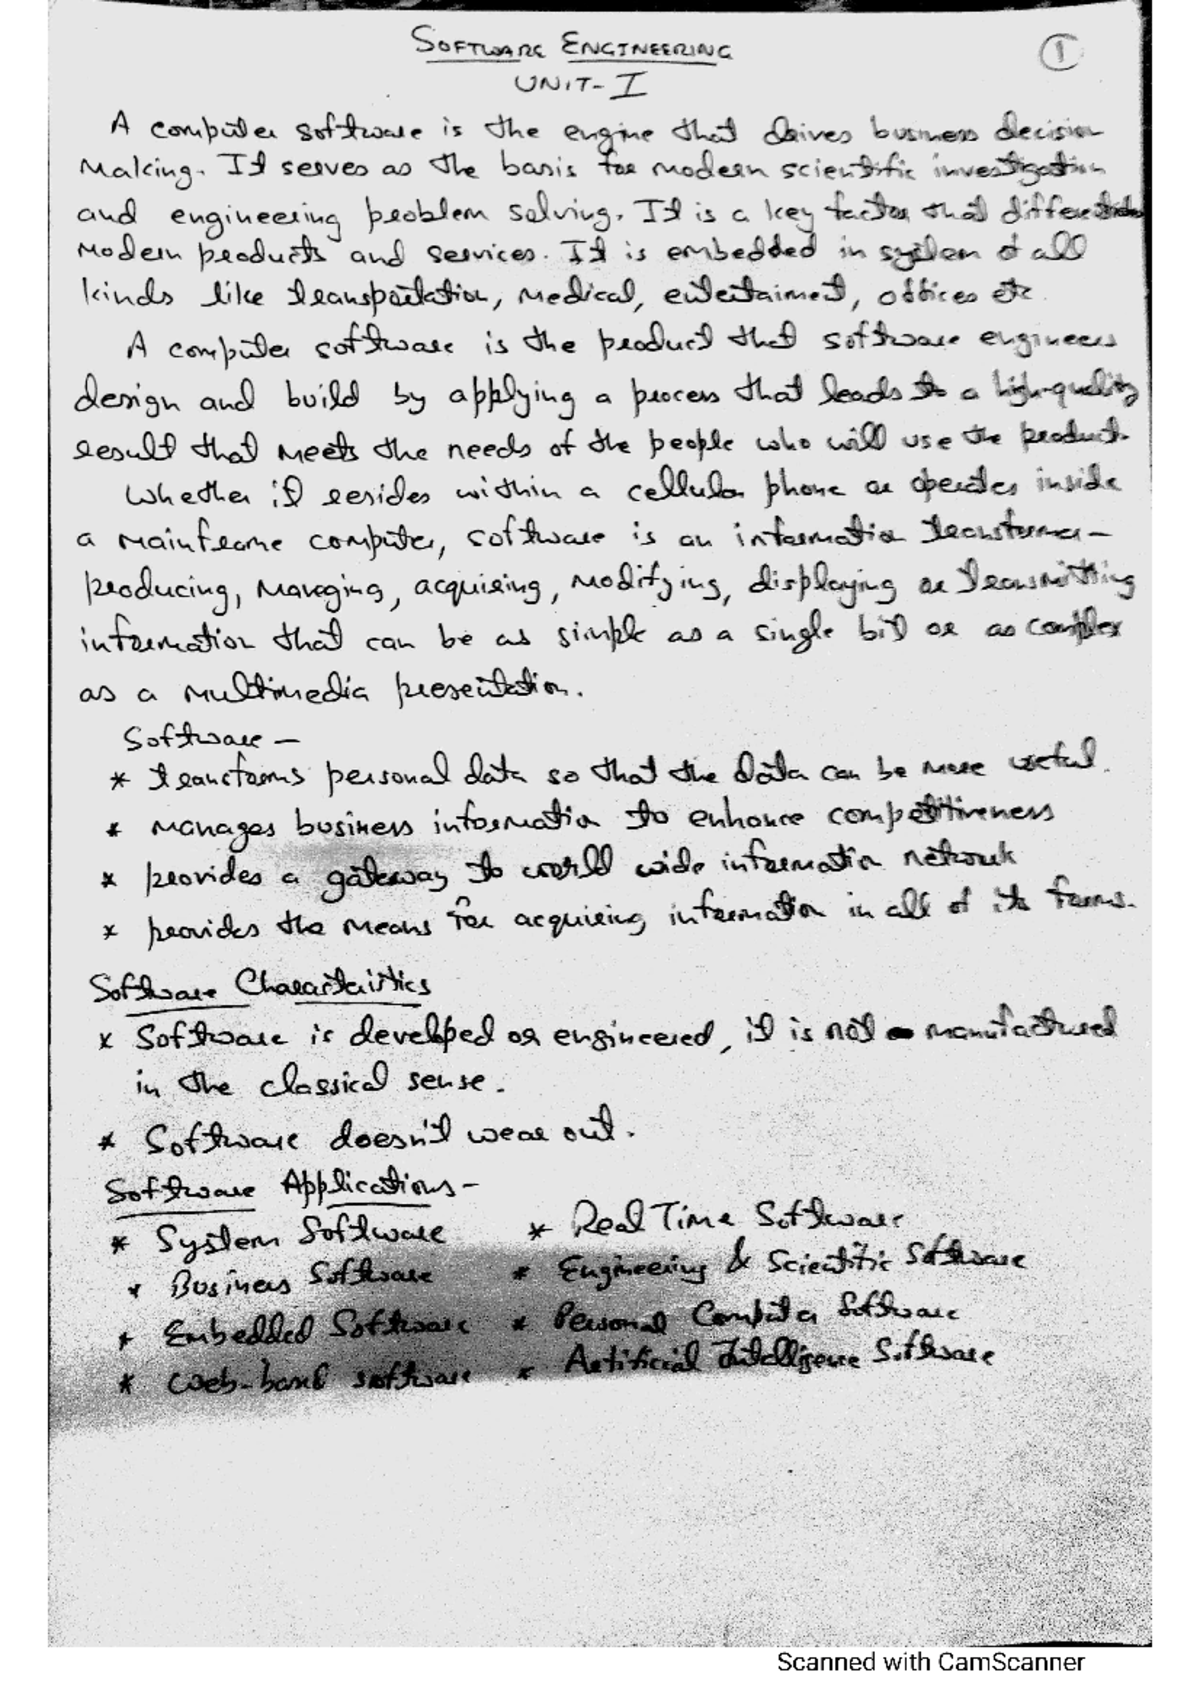 SOFTWARE ENGINEERING
1
UNIT-I
A computer software is the engine that drives business decision
making. It serves as the basis for modern scientific investigation
and engineering problem solving. It is a key factor that differentiates
modern products and services. It is embedded in system of all
kinds like transportation, medical, entertaiment, offices etc.
A computer software is the product that software engineers
design and build by applying a process that leads to a high-quality
result that meets the needs of the people who will use the product.
Whether it resides within a cellular phone or operates inside
a mainframe computer, software is an information transformer-
producing, managing, acquiring, modifying, displaying or transmitting
information that can be as simple as a single bit or as complex
as a multimedia presentation.
Software -
* transforms personal data so that the data can be more useful.
* manages business information to enhance competitiveness
* provides a gateway to world wide information network
* provides the means for acquiring information in all of its forms.
Software Charactaristics
* Software is developed or engineered, it is not manufactured
in the classical sense.
* Software doesn't wear out.
Software Applications-
* System Software * Real Time Software
* Business Software * Engineering & Scientific Software
* Embedded Software * Personal Computer Software
* Web-based software * Artificial Intelligence Software
Scanned with CamScanner